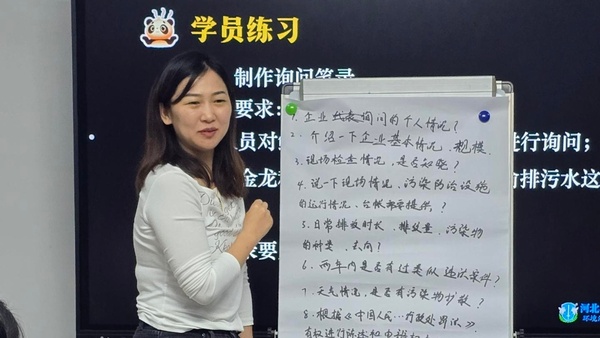 学员练习
制作询问笔录
要求:
员对
进行询问;
金龙
偷排污水这
要
1、企业代表询问的个人情况?
2、介绍一下企业基本情况、规模、
3、现场检查情况,是否知晓?
4、说一下现场情况,污染防治设施
的运行情况、台帐
提供?
5、日常排放时长、排放量、污染物
的种类、去向?
6、两年内是否有过类似违法案件?
7、天气情况,是否有污染物扩散?
8、根据《中国人民…行政处罚法》,
有权进行陈述和申辩
河北
环境